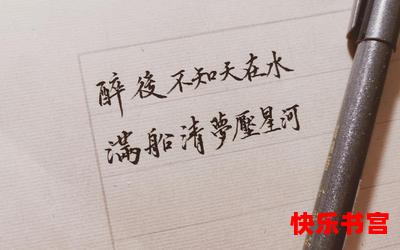 醉後不知天在水
滿船清夢壓星河
快乐书宫